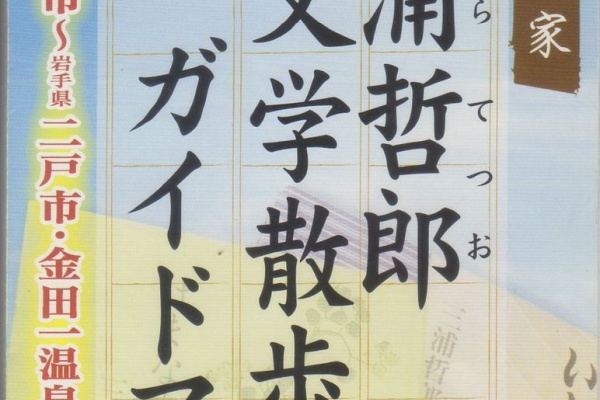 家
浦哲郎
らてつお
文学散歩
ガイドマ
市～岩手県二戸市・金田一温泉
三浦哲郎